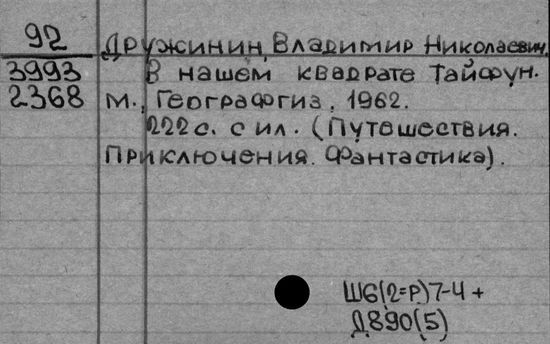 92 Дружинин, Владимир Николаевич.
3993 В нашем квадрате Тайфун.
2368 М., Географгиз, 1962.
222 с. с ил. (Путешествия.
Приключения. Фантастика).
Ш6(2=Р)7-4 +
Д890(5)